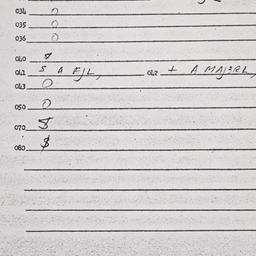 034 0
035 0
036 0
040 $
041 $ A
042 + A
043 0
050 0
070 $
080 $